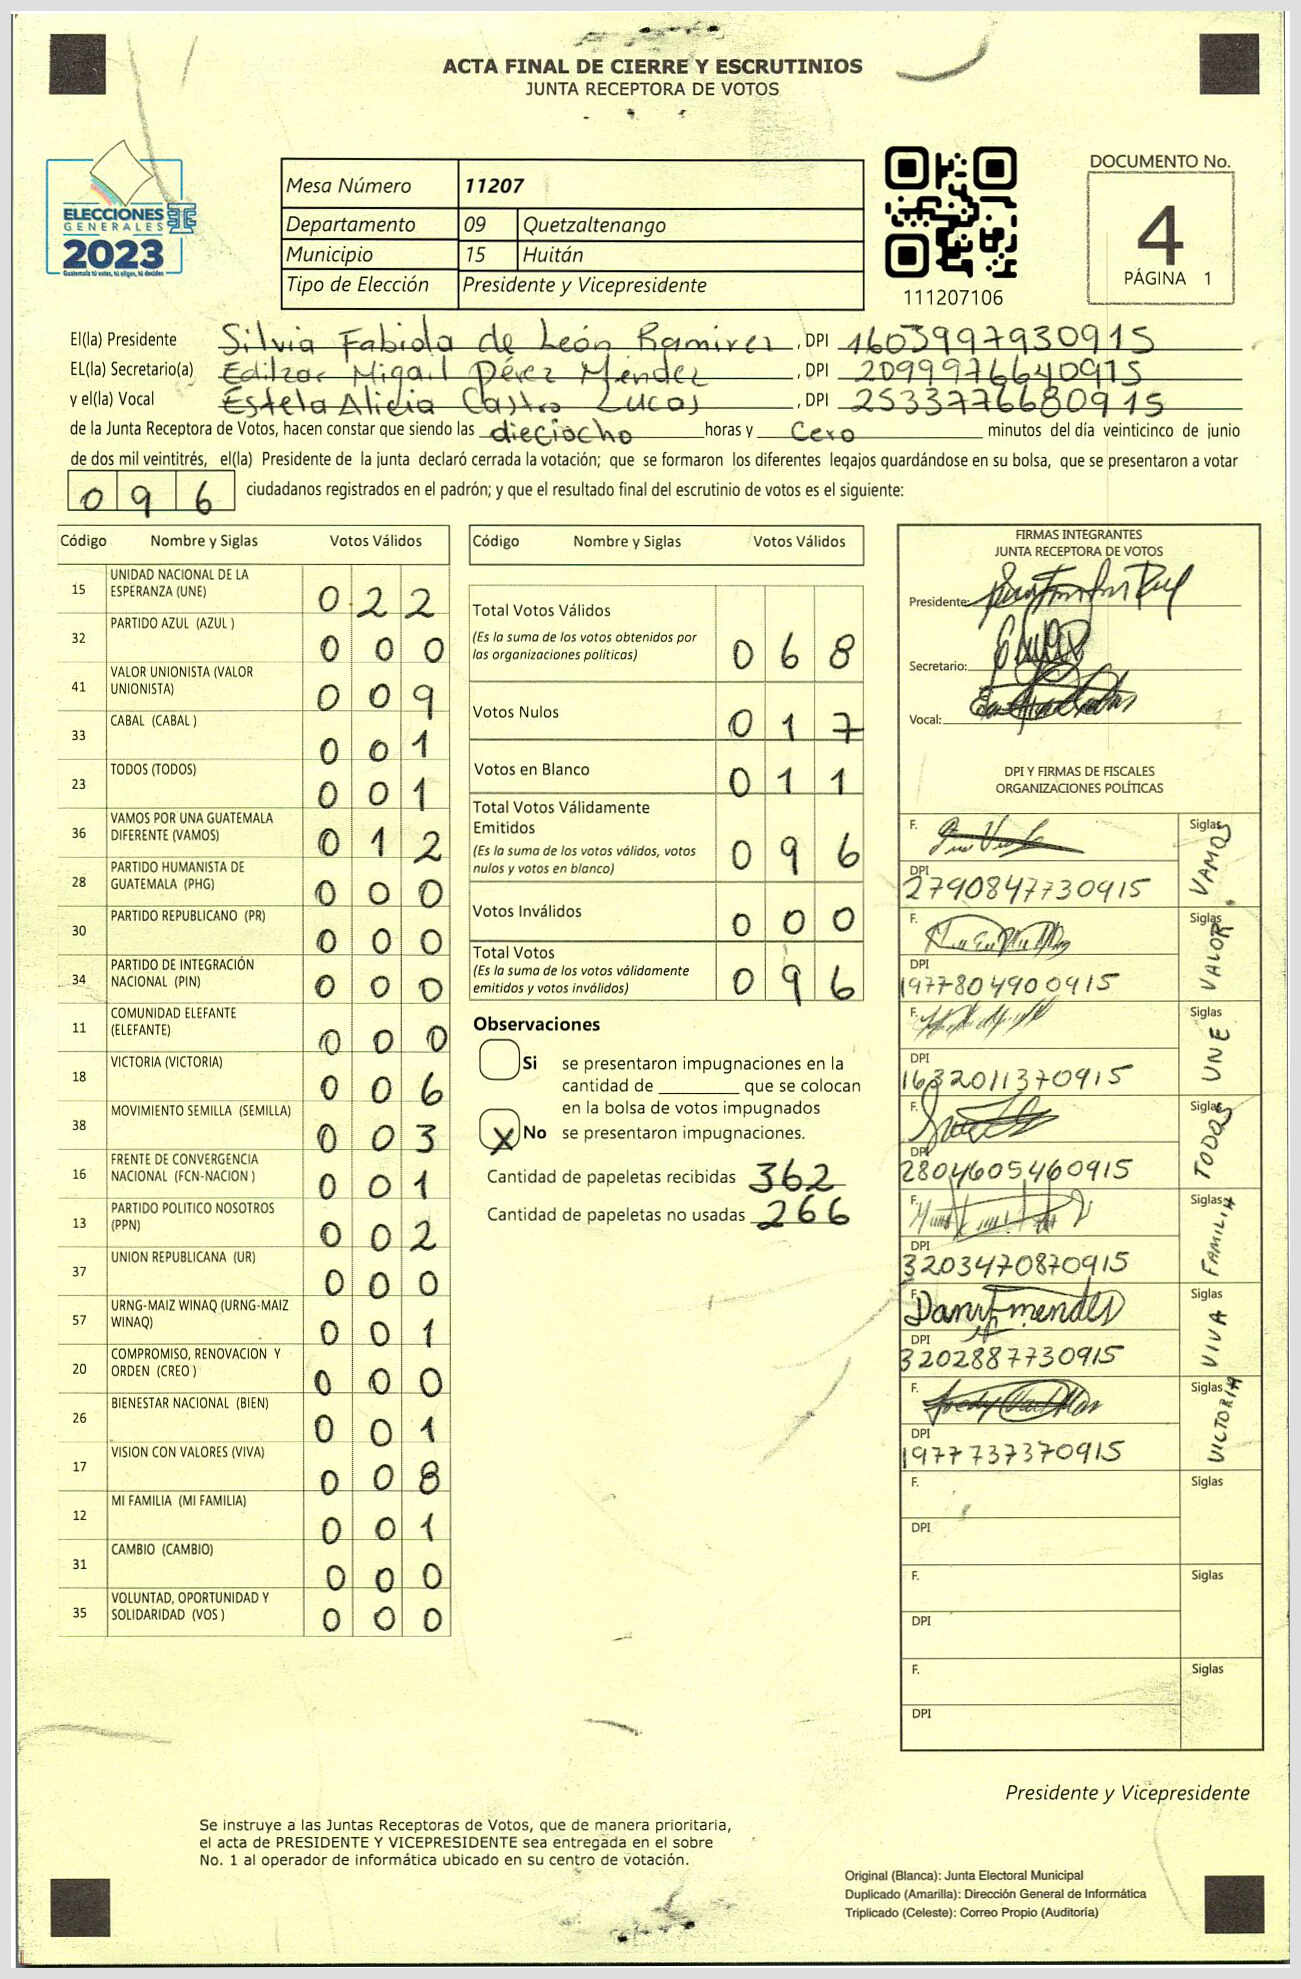 ACTA FINAL DE CIERRE Y ESCRUTINIOS
JUNTA RECEPTORA DE VOTOS
ELECCIONES
GENERALES
2023
Guatemala tú votas, tú eliges, tú decides
Mesa Número 11207
Departamento 09 Quetzaltenango
Municipio 15 Huitán
Tipo de Elección Presidente y Vicepresidente
111207106
DOCUMENTO No.
4
PÁGINA 1
El(la) Presidente Silvia Fabiola de León Ramirez, DPI 1603997930915
EL(la) Secretario(a) Edilzar Migail Pérez Méndez, DPI 2099976640915
y el(la) Vocal Estela Alicia Castro Lucas, DPI 2533776680915
de la Junta Receptora de Votos, hacen constar que siendo las dieciocho horas y Cero minutos del día veinticinco de junio
de dos mil veintitrés, el(la) Presidente de la junta declaró cerrada la votación; que se formaron los diferentes legajos guardándose en su bolsa, que se presentaron a votar
096 ciudadanos registrados en el padrón; y que el resultado final del escrutinio de votos es el siguiente:
Código Nombre y Siglas Votos Válidos
15 UNIDAD NACIONAL DE LA ESPERANZA (UNE) 022
32 PARTIDO AZUL (AZUL ) 000
41 VALOR UNIONISTA (VALOR UNIONISTA) 009
33 CABAL (CABAL ) 001
23 TODOS (TODOS) 001
36 VAMOS POR UNA GUATEMALA DIFERENTE (VAMOS) 012
28 PARTIDO HUMANISTA DE GUATEMALA (PHG) 000
30 PARTIDO REPUBLICANO (PR) 000
34 PARTIDO DE INTEGRACIÓN NACIONAL (PIN) 000
11 COMUNIDAD ELEFANTE (ELEFANTE) 000
18 VICTORIA (VICTORIA) 006
38 MOVIMIENTO SEMILLA (SEMILLA) 003
16 FRENTE DE CONVERGENCIA NACIONAL (FCN-NACION ) 001
13 PARTIDO POLITICO NOSOTROS (PPN) 002
37 UNION REPUBLICANA (UR) 000
57 URNG-MAIZ WINAQ (URNG-MAIZ WINAQ) 001
20 COMPROMISO, RENOVACION Y ORDEN (CREO ) 000
26 BIENESTAR NACIONAL (BIEN) 001
17 VISION CON VALORES (VIVA) 008
12 MI FAMILIA (MI FAMILIA) 001
31 CAMBIO (CAMBIO) 000
35 VOLUNTAD, OPORTUNIDAD Y SOLIDARIDAD (VOS ) 000
Código Nombre y Siglas Votos Válidos
Total Votos Válidos 068
(Es la suma de los votos obtenidos por
las organizaciones politicas)
Votos Nulos 017
Votos en Blanco 011
Total Votos Válidamente
Emitidos 096
(Es la suma de los votos válidos, votos
nulos y votos en blanco)
Votos Inválidos 000
Total Votos 096
(Es la suma de los votos válidamente
emitidos y votos inválidos)
Observaciones
Si se presentaron impugnaciones en la
cantidad de ________ que se colocan
en la bolsa de votos impugnados
X No se presentaron impugnaciones.
Cantidad de papeletas recibidas 362
Cantidad de papeletas no usadas 266
FIRMAS INTEGRANTES
JUNTA RECEPTORA DE VOTOS
Presidente:
Secretario:
Vocal:
DPI Y FIRMAS DE FISCALES
ORGANIZACIONES POLÍTICAS
F. Siglas VAMOS
DPI 2790847730915
F. Siglas VALOR.
DPI 1977804900915
F. Siglas UNE
DPI 1632011370915
F. Siglas TODOS
DPI 2804605460915
F. Siglas FAMILIA
DPI 3203470870915
F. Dany mendes Siglas VIVA
DPI 3202887730915
F. Siglas VICTORIA
DPI 1977737370915
F. Siglas
DPI
F. Siglas
DPI
F. Siglas
DPI
Presidente y Vicepresidente
Se instruye a las Juntas Receptoras de Votos, que de manera prioritaria,
el acta de PRESIDENTE Y VICEPRESIDENTE sea entregada en el sobre
No. 1 al operador de informática ubicado en su centro de votación.
Original (Blanca): Junta Electoral Municipal
Duplicado (Amarilla): Dirección General de Informática
Triplicado (Celeste): Correo Propio (Auditoría)